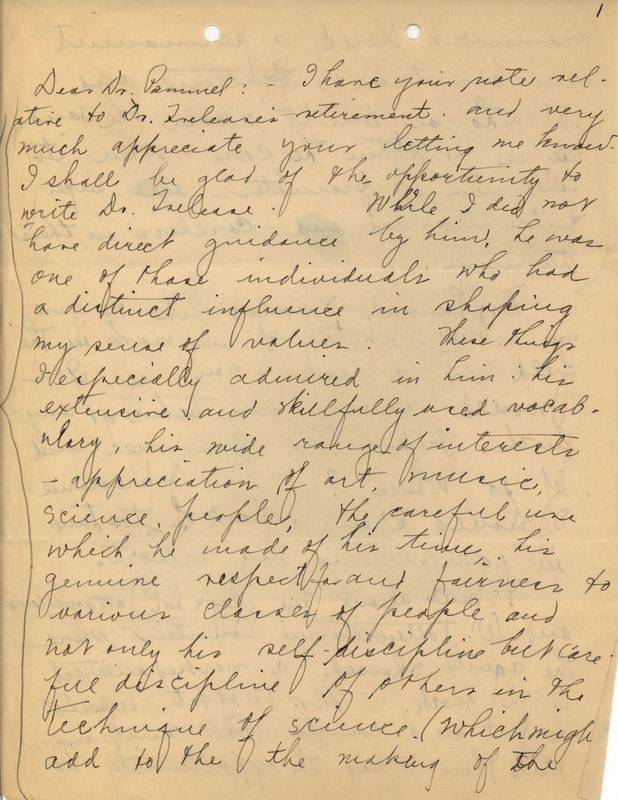 1
Dear Dr. Pammel: - I have your note rel-
ative to Dr. Trelease's retirement. and very
much appreciate your letting me know.
I shall be glad of the opportunity to
write Dr. Trelease. While I did not
have direct guidance by him, he was
one of those individuals who had
a distinct influence in shaping
my sense of values. These things
I especially admired in him: his
extensive and skillfully used vocab-
ulary, his wide range of interests
- appreciation of art, music,
science, people, the careful use
which he made of his time, his
genuine respect for and fairness to
various classes of people and
not only his self-discipline but care-
ful discipline of others in the
technique of science. (which migh
add to the the making of the